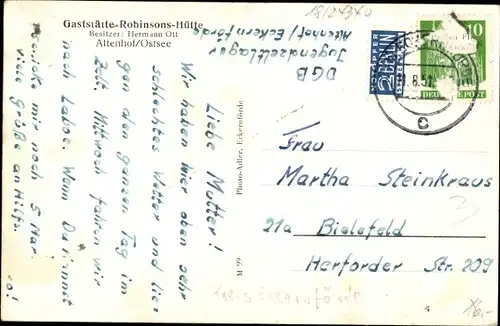 Gaststätte-Robinsons-Hütte
Besitzer: Hermann Ott
Altenhof/Ostsee
DGB
Jugendzeltlager
Altenhof/Eckernförde
Liebe Mutter!
Wir haben hier oben sehr
schlechtes Wetter und lie-
gen den ganzen Tag im
Zelt. Mittwoch fahren wir
nach Laboe. Wenn Du kannst
schicke mir noch 5 Mar-
viele Grüße an Hilfs.
Photo-Adler, Eckernförde
M 99
NOTOPFER
2 BERLIN
STEUERMARKE
10
DEUTSCHE POST
8.51
c
Frau
Martha Steinkraus
21a Bielefeld
Herforder Str. 209